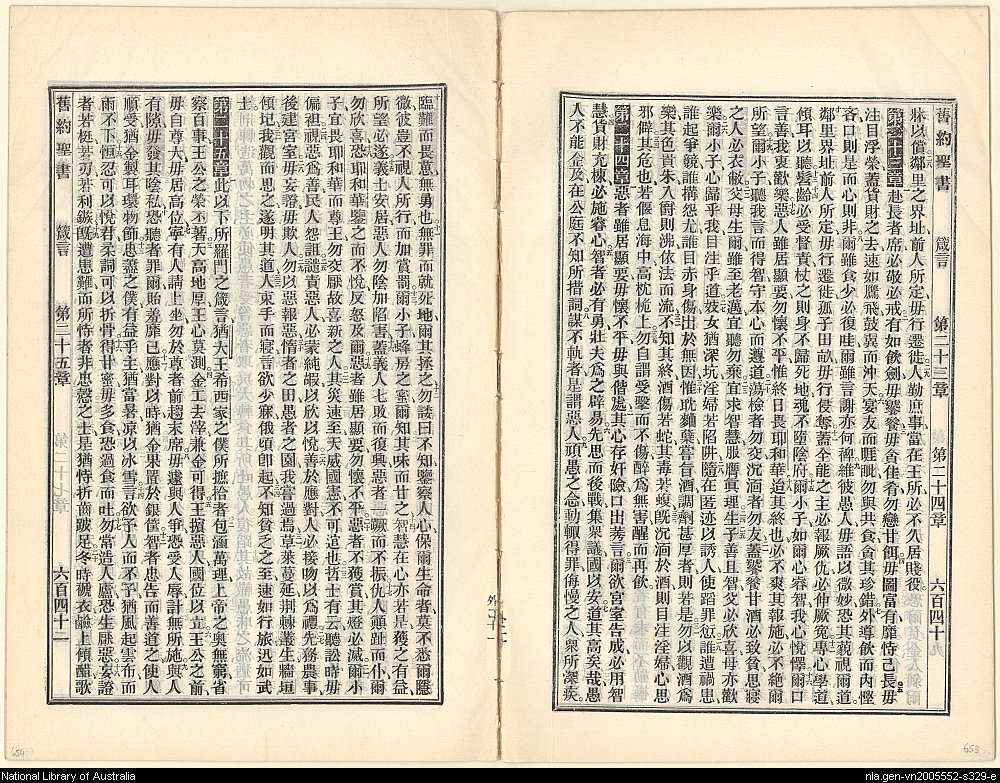 舊約聖書 箴言 第二十三章 第二十四章 六百四十九
牀以償鄰里之界址前人所定毋行遷徙人勤庶事當在王所必不久居賤役
第二十三章 赴長者席必敬必戒有如飲劍毋饕餮毋舍隹肴勿戀甘餌毋圖富有靡恃己長毋
注目浮榮蓋貨財之去速如鷹飛鼓翼而沖天宴友而睚眦勿與共食貪其珍錯外導飲而內慳
吝口則是而心則非爾雖食少必復哇爾雖言謝亦何裨維彼愚人毋語以微妙恐其藐視爾道
鄰里界址前人所定毋行遷徙孤子田畝毋行侵奪蓋全能之主必報厥仇必伸厥冤專心學道
傾耳以聽髫齡必受督責杖之則身不歸死地魂不墮陰府爾小子如爾心睿智我心悅懌爾口
言善我衷歡樂惡人雖居顯要勿懷不平惟終日畏耶和華迨其終也必不爽其報施必不絕爾
所望爾小子聽我言而得智守本心而遵道蕩檢者勿交沉湎者勿友蓋饕餮甘酒必致貧思寢
之人必衣敝父母生爾雖至老邁宜聽勿棄宜求智慧服膺眞理生子善且智父必欣喜母亦歡
樂爾小子心歸乎我目注乎道妓女猶深坑淫婦若陷阱隨在匿迹以誘人使蹈罪愆誰遭禍患
誰起爭競誰搆怨尤誰目赤身傷出於無因惟耽麯糵嘗旨酒調劑甚厚者則若是勿以觀酒爲
樂其色貫朱入則湧依法而流不知其終酒傷若蛇其毒若蝮旣沉湎於酒則目注淫婦心思
邪僻其危也若偃息海中高枕桅上勿自謂受擊而不傷醉爲無害醒而再飲
第二十四章 惡者雖居顯要毋懷不平毋與偕處其心存奸險口出莠言爾欲宮室吿成必用智
慧貨財充棟必施睿心智者必有勇壯夫爲之辟易先思而後戰集衆議國以安道其高矣哉愚
人不能企及在公庭不知所措詞謀不軌者是謂惡人頑愚之念動輒得罪侮慢之人衆所深疾
臨難而畏葸無勇也無罪而就死地爾其拯之勿諉曰不知鑒察人心保爾生命者莫不悉爾隱
微彼豈不視人所行而加賞罰爾小子蜂房之蜜爾知其味而甘之智慧在心亦若是獲之有益
所望必遂義士安居惡人勿陰加陷害蓋義人七敗而復興惡者一蹶而不振仇人顚趾而仆爾
勿欣喜恐耶和華鑒之而不悅反怒及爾惡者雖居顯要勿懷不平惡者不獲賞其燈必滅爾小
子宜畏耶和華而尊王勿交厭故喜新之人其災速至天威國憲不可逭也哲士有云聽訟時毋
偏袒視惡爲善民人怨詛譴責惡人必蒙純嘏以欣以悅善於應對人必接吻以爲禮先務農事
後建宮室毋妄證毋欺人勿以惡報惡惰者之田愚者之園我嘗過焉草萊蔓延荆棘叢生牆垣
傾圮我觀而思之遂明其道人束手而寢言欲少寐俄頃卽起不知貧乏之至速如行旅迅如武
士
第二十五章 此以下所羅門之箴言猶大王希西家之僕所摭拾者包涵萬理上帝之奧無窮省
察百事王公之榮丕著天高地厚王心莫測金工去滓兼金可得王擯惡人國位以立王公之前
毋自尊大毋居高位寧有人請上坐勿於尊者前趨末席毋遽與人爭恐受人辱計無所施與人
有隙毋發其陰私恐聽者罪爾貽羞靡已應對以時猶金果置於銀筐智者忠告而善道之使人
順受猶金製耳環物節忠藎之僕有益乎主猶當暑凉以冰雪言欲予人而不予猶風起雲布而
雨不下恒忍可以悅君柔詞可以折骨得甘蜜毋多食恐過食而吐勿常造人廬恐生厭惡妄證
者若梃若刃若利鏃旣遭患難而所恃者非忠慤之士是猶恃折齒跛足冬時襯衣鹼上傾醯歌
舊約聖書 箴言 第二十五章 六百四十二
外二十一
654
653
National Library of Australia
nla.gen-vn2005552-s329-e